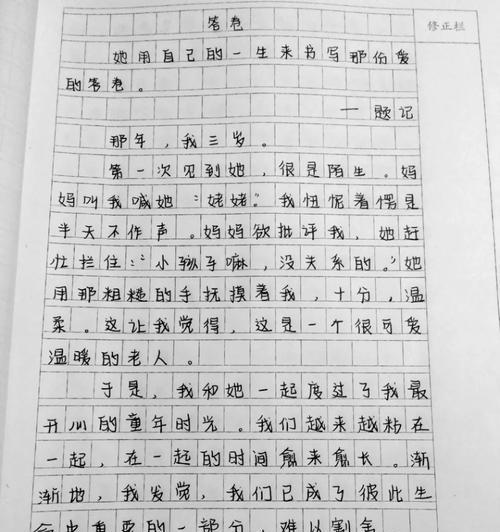 答卷
修正栏
她用自己的一生来书写那份爱
的答卷。
—题记
那年，我三岁。
第一次见到她，很是陌生。妈
妈叫我喊她“姥姥”。我忸怩着愣是
半天不作声。妈妈欲批评我，她赶
忙拦住：“小孩子嘛，没关系的。”她
用那粗糙的手抚摸着我，十分，温
柔。这让我觉得，这是一个很可爱
温暖的老人。
于是，我和她一起度过了我最
开心的童年时光。我们越来越粘在
一起，在一起的时间愈来愈长。渐
渐地，我发觉，我们已成了彼此生
命中重要的一部分，难以割舍